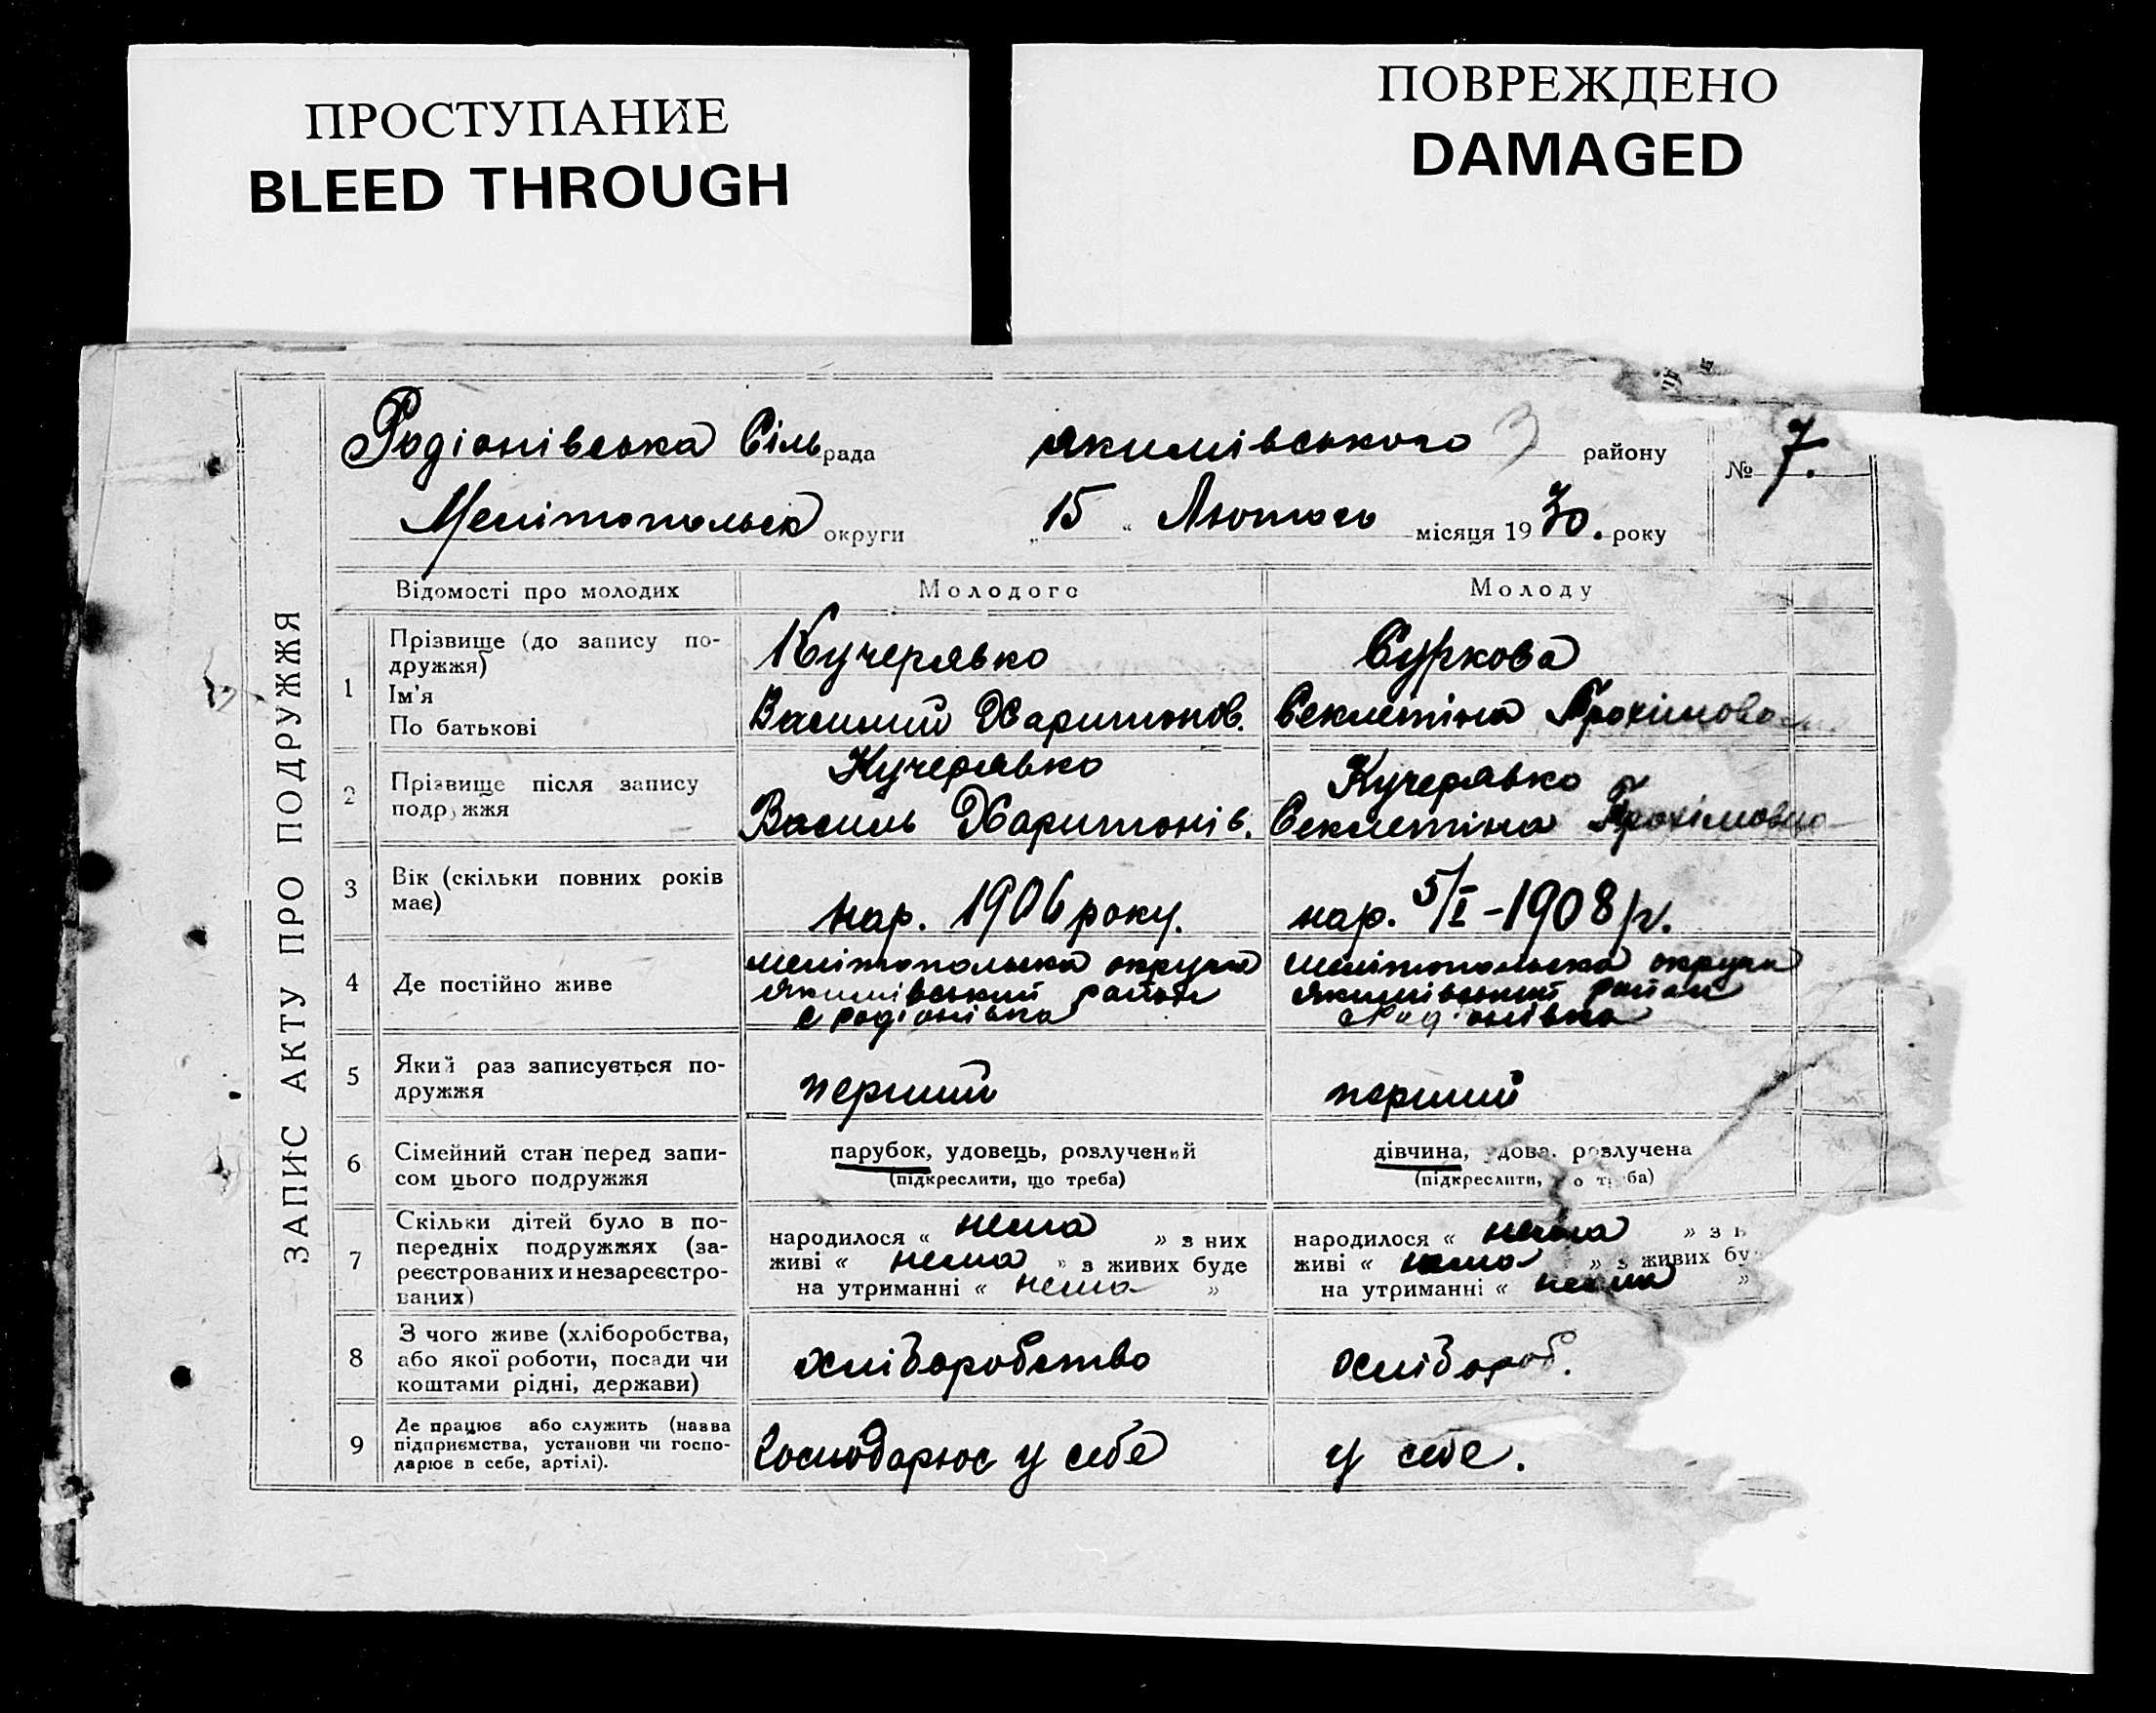 ПРОСТУПАНИЕ
BLEED THROUGH
ПОВРЕЖДЕНО
DAMAGED
ЗАПИС АКТУ ПРО ПОДРУЖЖЯ
Родіонівська Сільрада Якимівського району № 7.
Мелітопольск округи „15“ Лютого місяця 1930. року
Відомості про молодих Молодого Молоду
1 Прізвище (до запису по-
дружжя)
Ім'я
По батькові
Кучерявко
Василий Харитонов.
Суркова
Секлетіна
2 Прізвище після запису
подружжя
Кучерявко
Василь Харитонів.
Кучерявко
Секлетіна
3 Вік (скільки повних років
має)
нар. 1906 року.
нар. 5/I-1908 р.
4 Де постійно живе
мелітопольска округа
якимівський район
с родіонівка
мелітопольска округа
якимівський район
с родіонівка
5 Який раз записується по-
дружжя
перший
перший
6 Сімейний стан перед запи-
сом цього подружжя
парубок, удовець, розлучений
(підкреслити, що треба)
дівчина, удова, розлучена
(підкреслити, що треба)
7 Скільки дітей було в по-
передніх подружжях (за-
реєстрованих и незареєстро-
ваних)
народилося « нема » з них
живі « нема » з живих буде
на утриманні « нема »
народилося « нема » з
живі « нема » з живих бу
на утриманні « нема »
8 З чого живе (хліборобства,
або якої роботи, посади чи
коштами рідні, держави)
хліборобство
хлібороб.
9 Де працює або служить (назва
підприємства, установи чи госпо-
дарює в себе, артілі).
Господарює у себе
у себе.